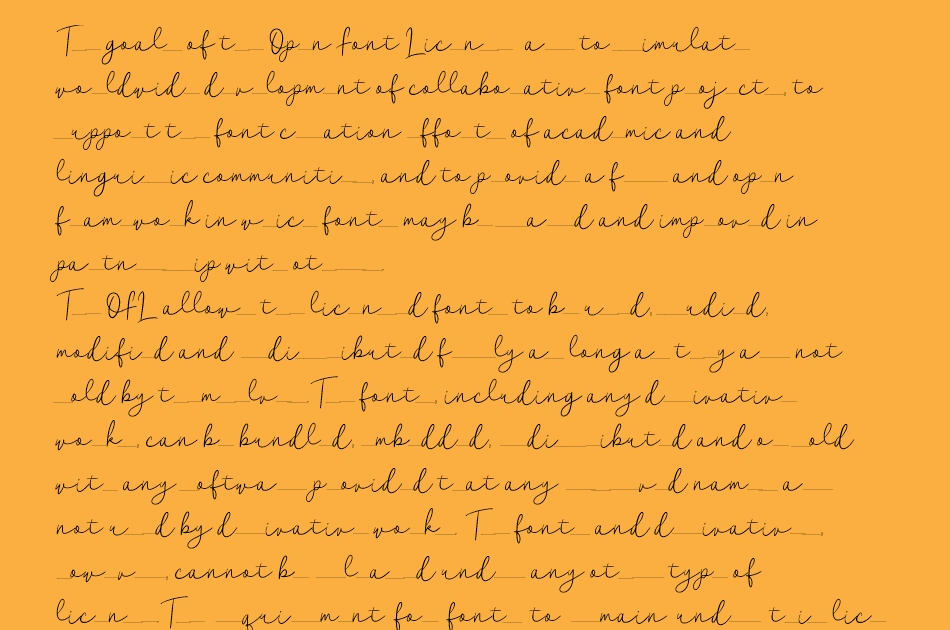 T goal of t Op n Font Lic n a to imulat
wo ldwid d v lopm nt of collabo ativ font p oj ct , to
uppo t t font c ation ffo t of acad mic and
lingui ic communiti , and to p ovid a f and op n
f am wo k in w ic font may b a d and imp ov d in
pa tn ip wit ot
T OFL allow t lic n d font to b u d, udi d,
modifi d and di ibut d f ly a long a t y a not
old by t m lv . T font , including any d ivativ
wo k , can b bundl d, mb dd d, di ibut d and o old
wit any oftwa p ovid d t at any v d nam a
not u d by d ivativ wo k . T font and d ivativ ,
ow v , cannot b l a d und any ot typ of
lic n . T qui m nt fo font to main und t i lic